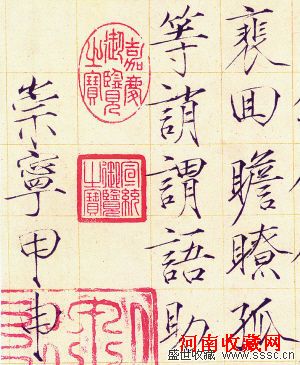 裵回瞻瞭孤
等誚謂語助
崇寧甲申
嘉慶
御覽
之寶
宣統
御覽
之寶
河南收藏网
盛世收藏 www.sssc.cn